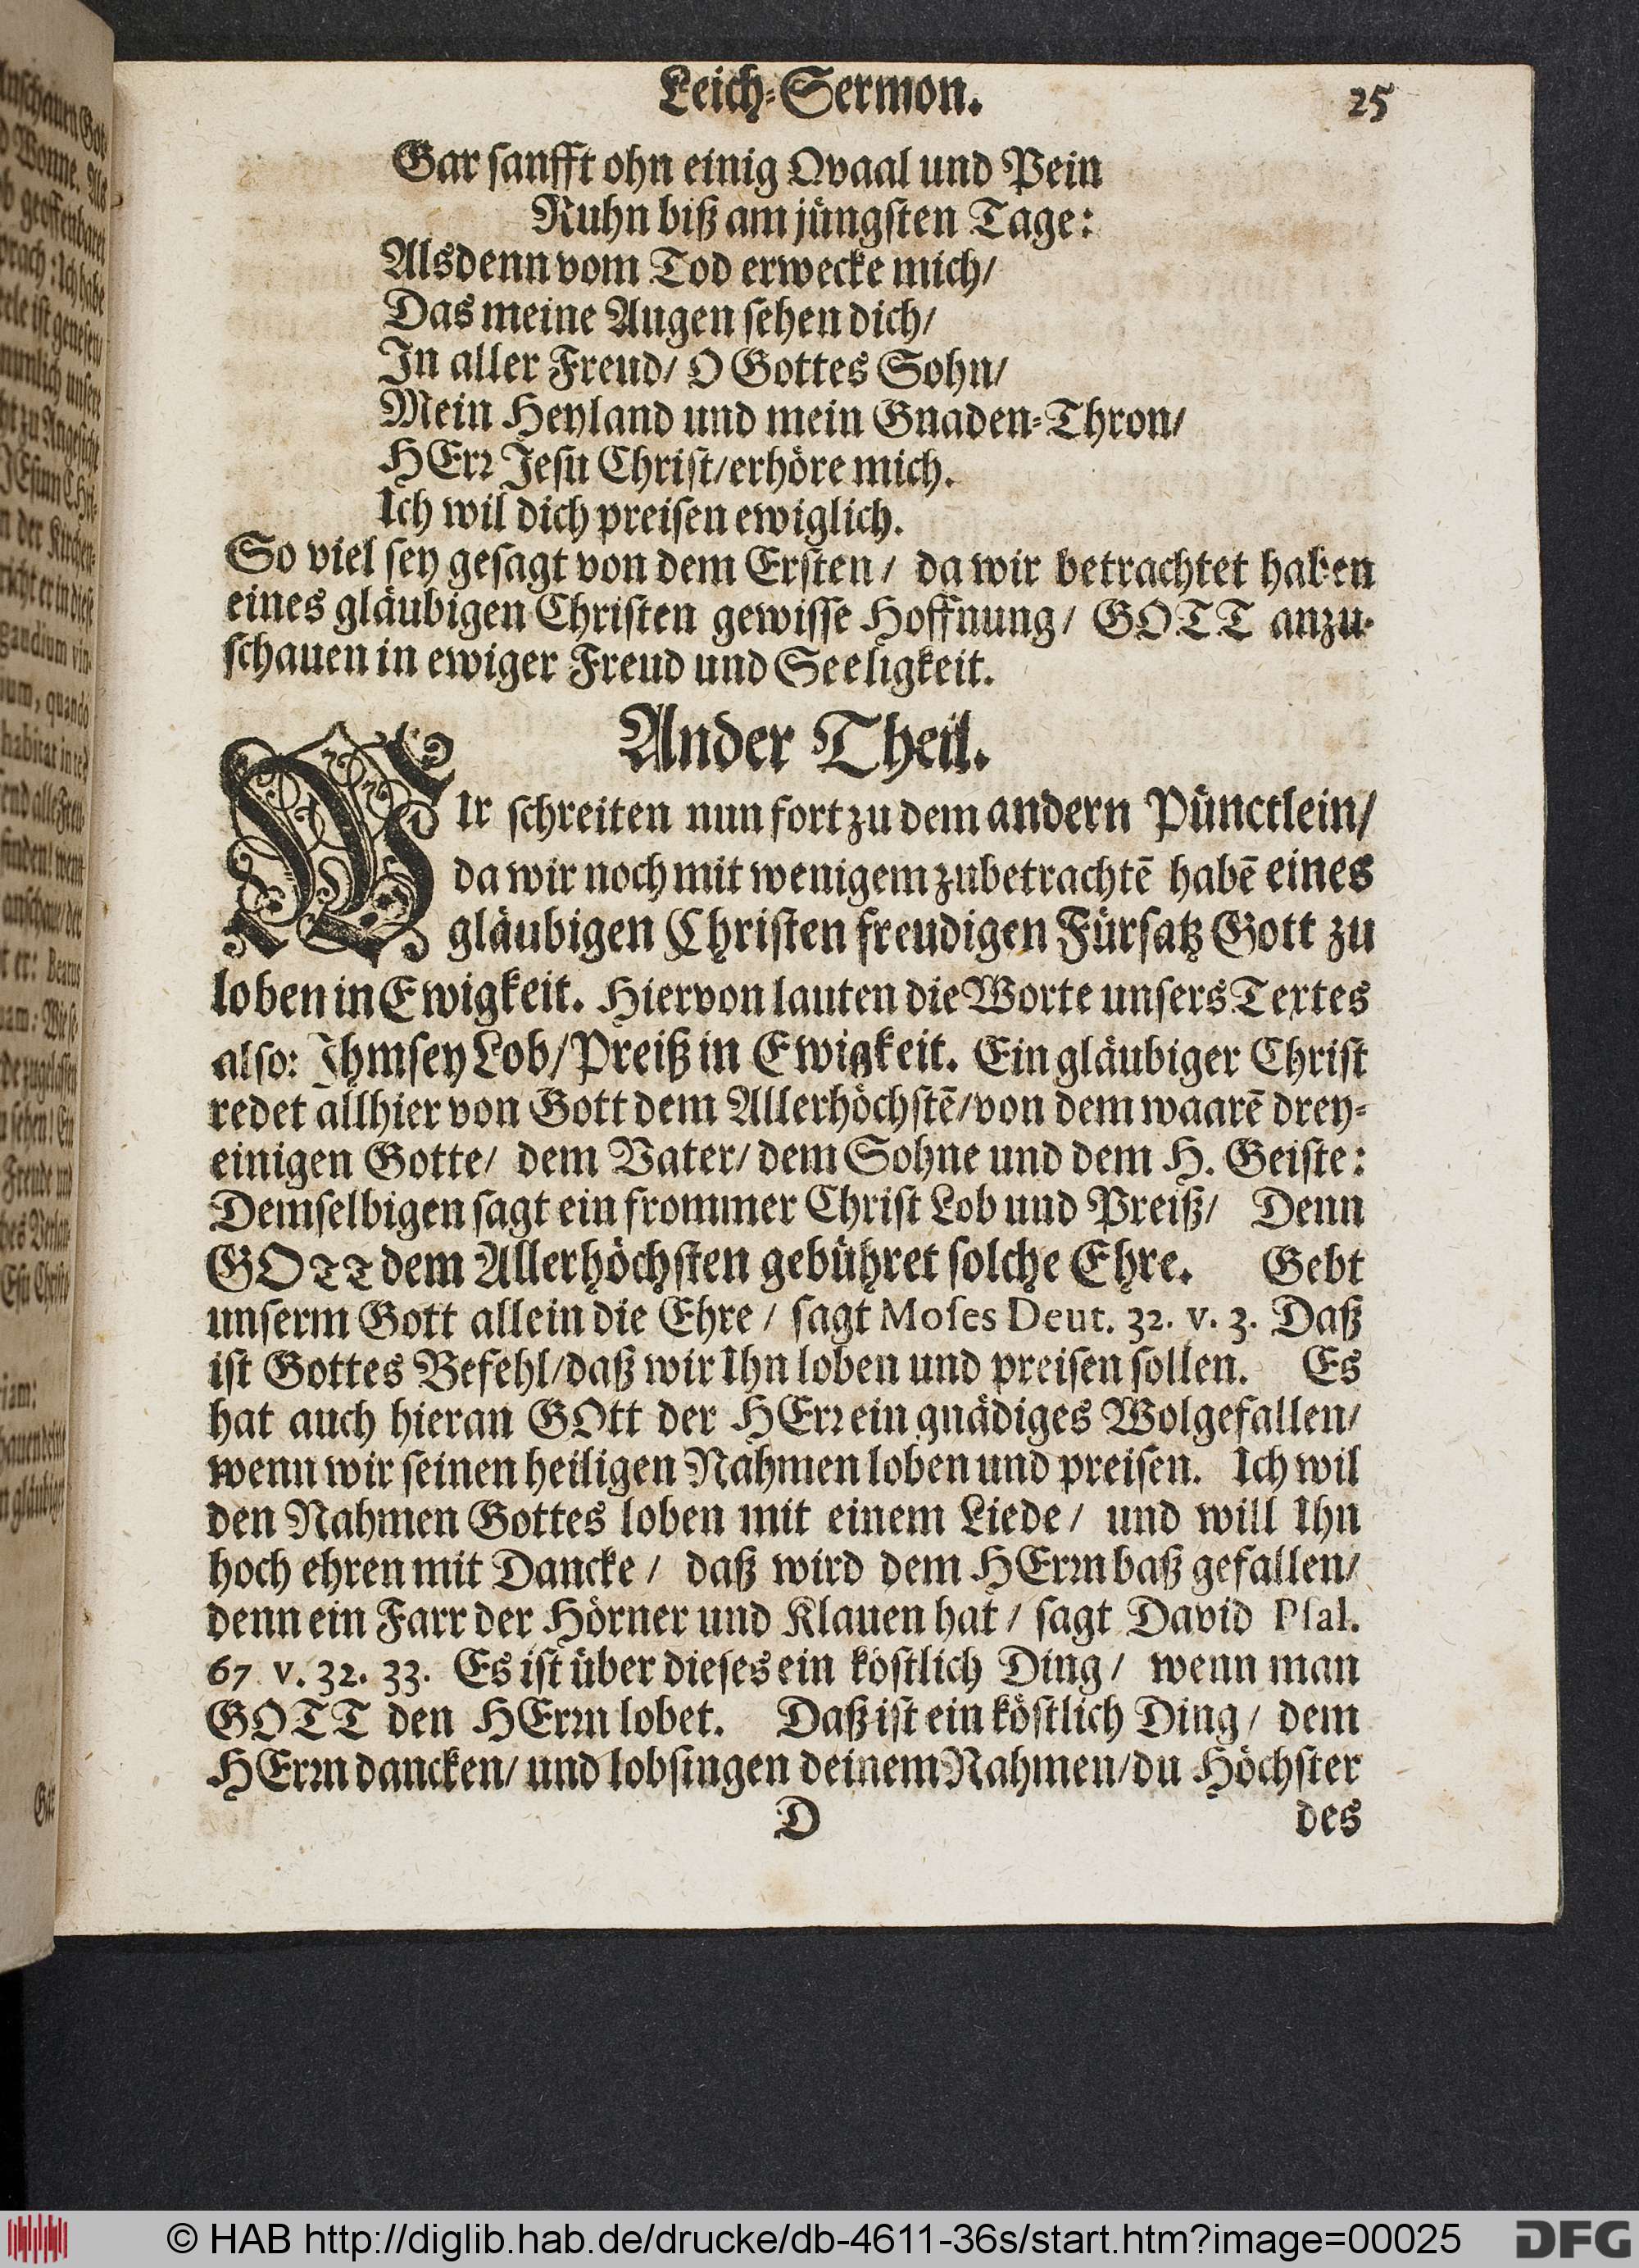 Leich-Sermon. 25
Gar ſanfft ohn einig Qvaal und Pein
Ruhn biß am jüngſten Tage:
Alsdenn vom Tod erwecke mich/
Das meine Augen ſehen dich/
In aller Freud/ O Gottes Sohn/
Mein Heyland und mein Gnaden-Thron/
HErꝛ Jeſu Chriſt/erhöre mich.
Ich wil dich preiſen ewiglich.
So viel ſey geſagt von dem Erſten/ da wir betrachtet haben
eines gläubigen Chriſten gewiſſe Hoffnung/ GOTT anzu-
ſchauen in ewiger Freud und Seeligkeit.
Ander Theil.
WIr ſchreiten nun fort zu dem andern Pünctlein/
da wir noch mit wenigem zubetrachtē habē eines
gläubigen Chriſten freudigen Fürſatz Gott zu
loben in Ewigkeit. Hiervon lauten die Worte unſers Textes
alſo: Ihm ſey Lob/Preiß in Ewigkeit. Ein gläubiger Chriſt
redet allhier von Gott dem Allerhöchſtē/von dem waarē drey-
einigen Gotte/ dem Vater/ dem Sohne und dem H. Geiſte:
Demſelbigen ſagt ein frommer Chriſt Lob und Preiß/ Denn
GOTT dem Allerhöchſten gebühret ſolche Ehre. Gebt
unſerm Gott allein die Ehre/ ſagt Moſes Deut. 32. v. 3. Daß
iſt Gottes Befehl/daß wir Ihn loben und preiſen ſollen. Es
hat auch hieran GOtt der HErꝛ ein gnädiges Wolgefallen/
wenn wir ſeinen heiligen Nahmen loben und preiſen. Ich wil
den Nahmen Gottes loben mit einem Liede/ und will Ihn
hoch ehren mit Dancke/ daß wird dem HErꝛn baß gefallen/
denn ein Farr der Hörner und Klauen hat/ ſagt David Pſal.
67 v. 32. 33. Es iſt über dieſes ein köſtlich Ding/ wenn man
GOTT den HErꝛn lobet. Daß iſt ein köſtlich Ding/ dem
HErꝛn dancken/ und lobſingen deinem Nahmen/du Höchſter
D des
© HAB http://diglib.hab.de/drucke/db-4611-36s/start.htm?image=00025 DFG